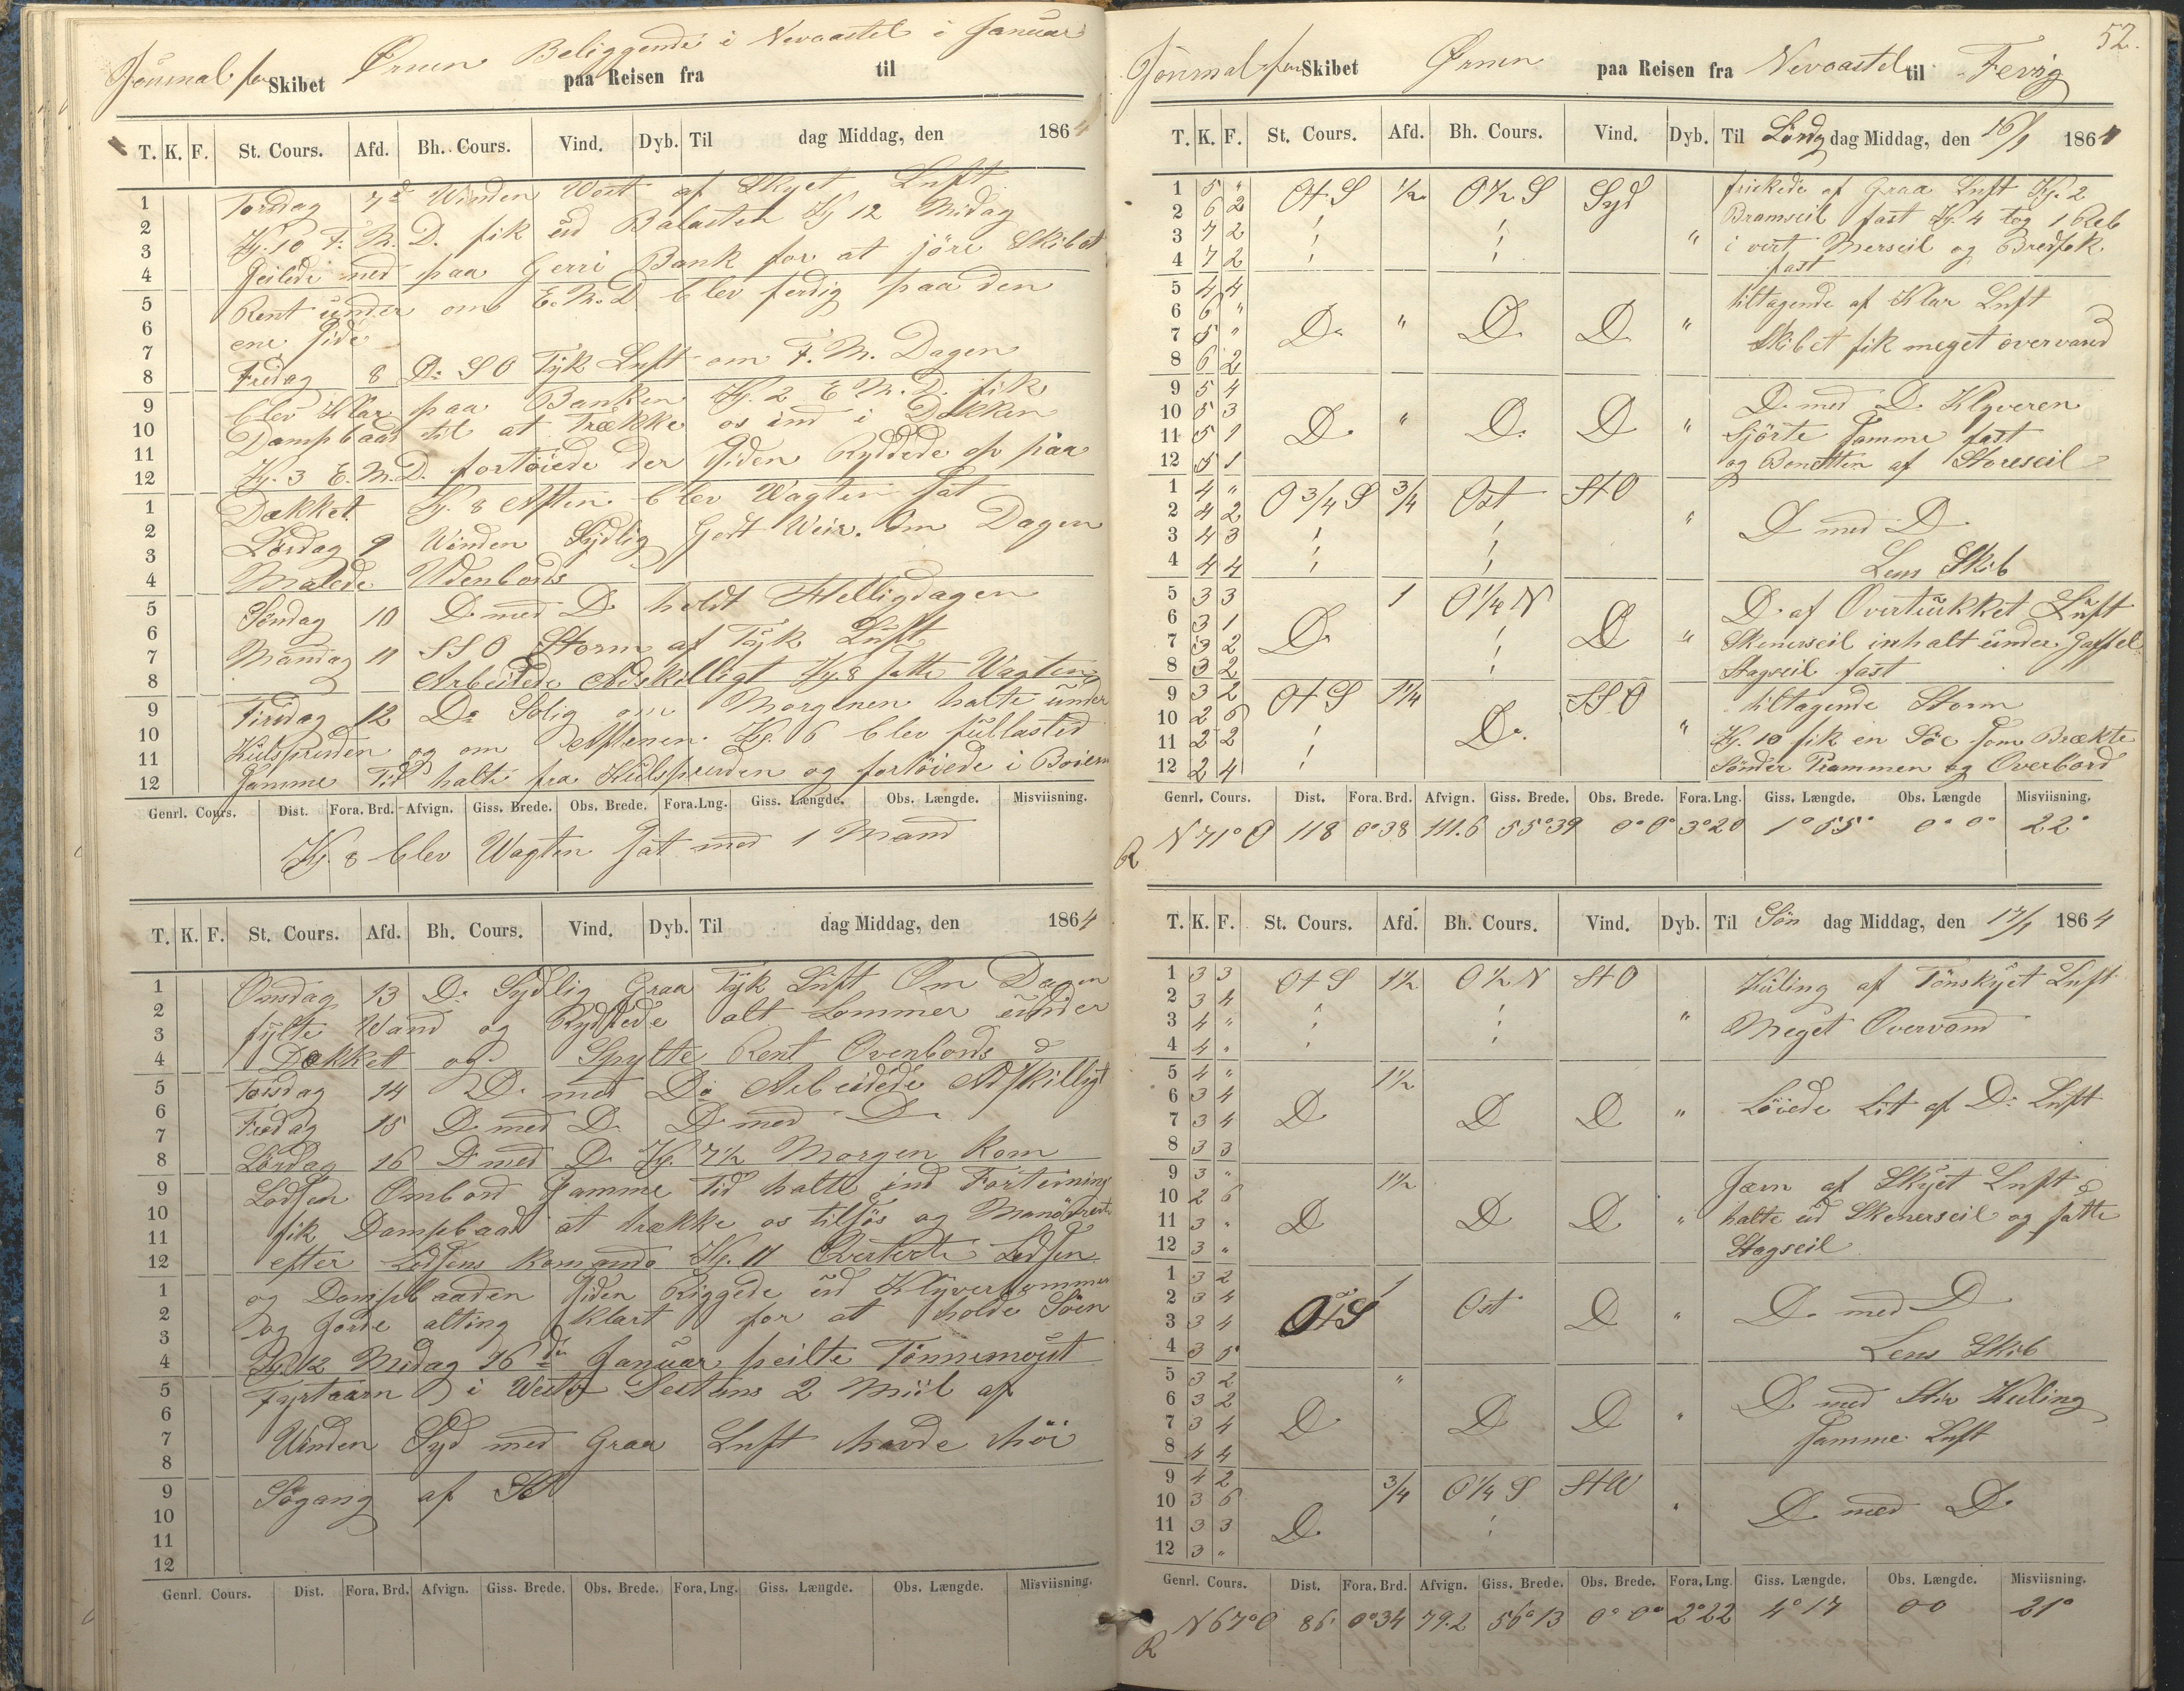 Journal for Skibet Ørnen Beliggende i Nevcastel i Januar
paa Reisen fra til
T. K. F. St. Cours. Afd. Bh. Cours. Vind. Dyb. Til dag Middag, den 1864
1 Torsdag 7de Winden West af Skyet Luft
2 Kl. 10 F. M. D. fik ud Balasten Kl 12 Midag
3 seilede ned paa Gerri Bank for at jöre Skibet
4 Rent under om E. M. D blev ferdig paa den
5 ene Side
6 Fredag 8 Do SO Tyk Luft om F. M. Dagen
7 blev Klar paa Banken Kl. 2 E M. D. fik
8 Dampbaad til at Trække os ind i Dokken
9 Kl. 3 E. M. D. fortöiede der Siden Ryddede op paa
10 Dækket. Kl. 8 Aften blev Wagten sat
11 Lørdag 9 Winden Sydlig Godt Weir. Om Dagen
12 Malede Udenbords
1 Söndag 10 D. med D. holdt Helligdagen
2 Mandag 11 SSO Storm af Tyk Luft
3 Arbeidede Adskilligt Kl. 8 satte Wagten
4 Tirsdag 12 Do Solig om Morgenen halte under
5 Kulsprunden og om Aftenen. Kl. 6 blev fullasted
6 Samme Tid halte fra Kulsprunden og fortöiede i Boiern
7
8
9
10
11
12
Genrl. Cours. Dist. Fora. Brd. Afvign. Giss. Brede. Obs. Brede. Fora. Lng. Giss. Længde. Obs. Længde. Misviisning.
Kl. 8 blev Wagten sat med 1 Mand
T. K. F. St. Cours. Afd. Bh. Cours. Vind. Dyb. Til dag Middag, den 1864
1 Onsdag 13 D. Sydlig Graa Tyk Luft Om Dagen
2 fylte Wand og Ryddede alt Lommer under
3 Dækket og Spylte Rent Ovenbords
4 Torsdag 14 D. med Do Arbeidede Adskilligt
5 Fredag 15 D med D. D med D
6 Lördag 16 D med D Kl. 7½ Morgen kom
7 Lodsen Ombord Samme Tid halte ind Fortöining
8 fik Dampbaad at trække os tilsös og Manövrerte
9 efter Lodsens Komando Kl. 11 Qverterte Lodsen
10 og Dampbaaden Siden Riggede ud Klyverbommen
11 og Jorde alting klart for at holde Söen
12 Kl. 12 Midag 16de Januar peilte Tönnemout
1 Fyrtaarn i West Destans 2 Miil af
2 Winden Syd med Graa Luft havde höi
3 Sögang af SO
4
5
6
7
8
9
10
11
12
Genrl. Cours. Dist. Fora. Brd. Afvign. Giss. Brede. Obs. Brede. Fora, Lng. Giss. Længde. Obs. Længde. Misviisning.
52.
Journal for Skibet Ørnen paa Reisen fra Nevcastel til Fevig
T. K. F. St. Cours. Afd. Bh. Cours. Vind. Dyb. Til Lördag dag Middag, den 16/1 1864
1 5 " OtS ½ O½S Syd friskede af Graa Luft Kl. 2
2 6 2 Bramseil fast Kl. 4 tog 1 Reb
3 7 2 " i vert Merseil og Bredfok
4 7 2 fast
5 4 4 tiltagende af Klar Luft
6 6 " D. " D. D "
7 5 " Skibet fik meget overvand
8 6 2
9 5 4 D. med D. Klyveren
10 5 3 D. " D. D "
11 5 1 Sjörte Samme fast
12 5 1 og Bonetten af Storeseil
1 4 " O¾S ¾ Ost StO
2 4 2 " D med D
3 4 3
4 4 4 Lens Skib
5 3 3 1 O¼N D. af Overtrukket Luft
6 3 1 D. D
7 3 2 " Skenerseil inhalt under Gaffel
8 3 2 Stagseil fast
9 3 2 OtS 1¼ SSO tiltagende Storm
10 2 6 D. " Kl. 10 fik en Söe som Brækte
11 2 2
12 2 4 Sönder Prammen og Overbord
Genrl. Cours. Dist. Fora. Brd. Afvign. Giss. Brede. Obs. Brede. Fora. Lng. Giss. Længde. Obs. Længde Misviisning.
R N 71° O 118 0°38 111.6 55°39 0°0° 3°20 1°55° 0°0° 22°
T. K. F. St. Cours. Afd. Bh. Cours. Vind. Dyb. Til Sön dag Middag, den 17/1 1864
1 3 3 OtS 1½ O½N StO Kuling af Tönskyet Luft
2 3 4
3 4 " " Meget Overvand
4 4 "
5 4 " 1½
6 3 4 D D D " Löiede Lit af D. Luft
7 3 4
8 3 3
9 3 " 1½ Jævn af Skyet Luft
10 2 6 D D D " halte ud Skenerseil og satte
11 3 "
12 3 " Stagseil
1 3 2 OtS 1 Ost D
2 3 4 " D. med D
3 3 4
4 3 5 Lens Skib
5 3 2 "
6 3 2 D D D " D med Stiv Kuling
7 3 4 Samme Luft
8 4 4
9 4 2 ¾ O¼S StW
10 3 6 " D med D
11 3 3 D
12 3 "
Genrl. Cours. Dist. Fora. Brd. Afvign. Giss. Brede. Obs. Brede. Fora, Lng. Giss. Længde. Obs. Længde. Misviisning.
R N 67° O 86 0°34 79.2 56°13 0°0° 2°22 4°17 00 21°